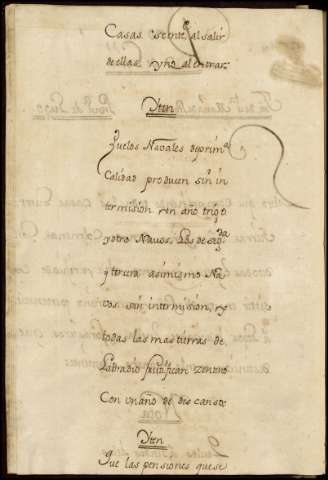 Casas sente, al salir
de ellas, y no al entrar.
Yten
Que los Navales de prim.ª
Calidad producen sin in
termision, en año trigo
y otro Navos, Los de seg.da
y tercera asimismo Na
vos sin intermision, y
todas las mas tierras de
Labradio frutifican zenteno
Con un año de descanso.
Yten
Que las pensiones que se